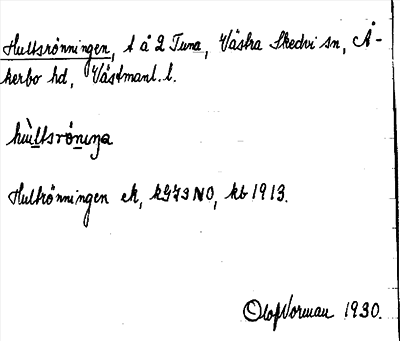 Hultsrönningen, t å 2 Tuna, Västra Skedvi sn, Å-
kerbo hd, Västmanl. l.
hùltsrö̀niŋa
Hultrönningen ek, kG73NO, kb 1913.
Olof Norman 1930.